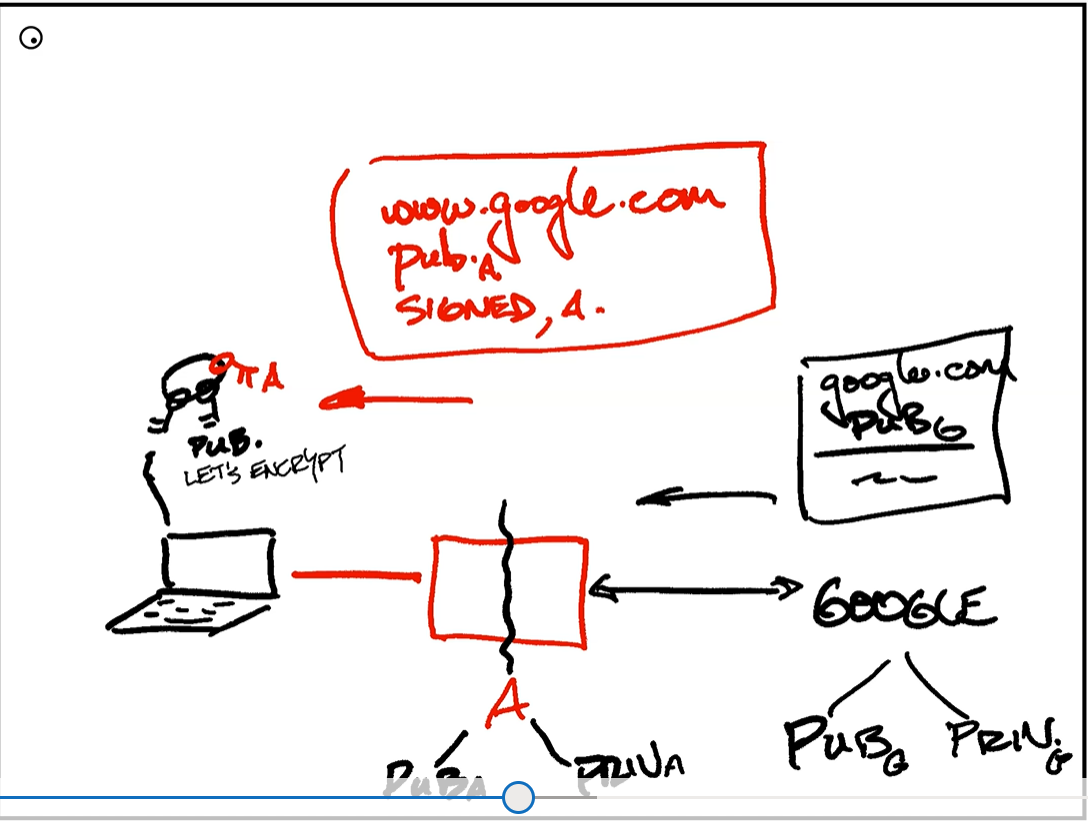 www.google.com
pub.A
SIGNED, A.
A
PUB.
LET'S ENCRYPT
google.com
PUBG
GOOGLE
PUBG PRIV.G
A
PUBA PRIVA